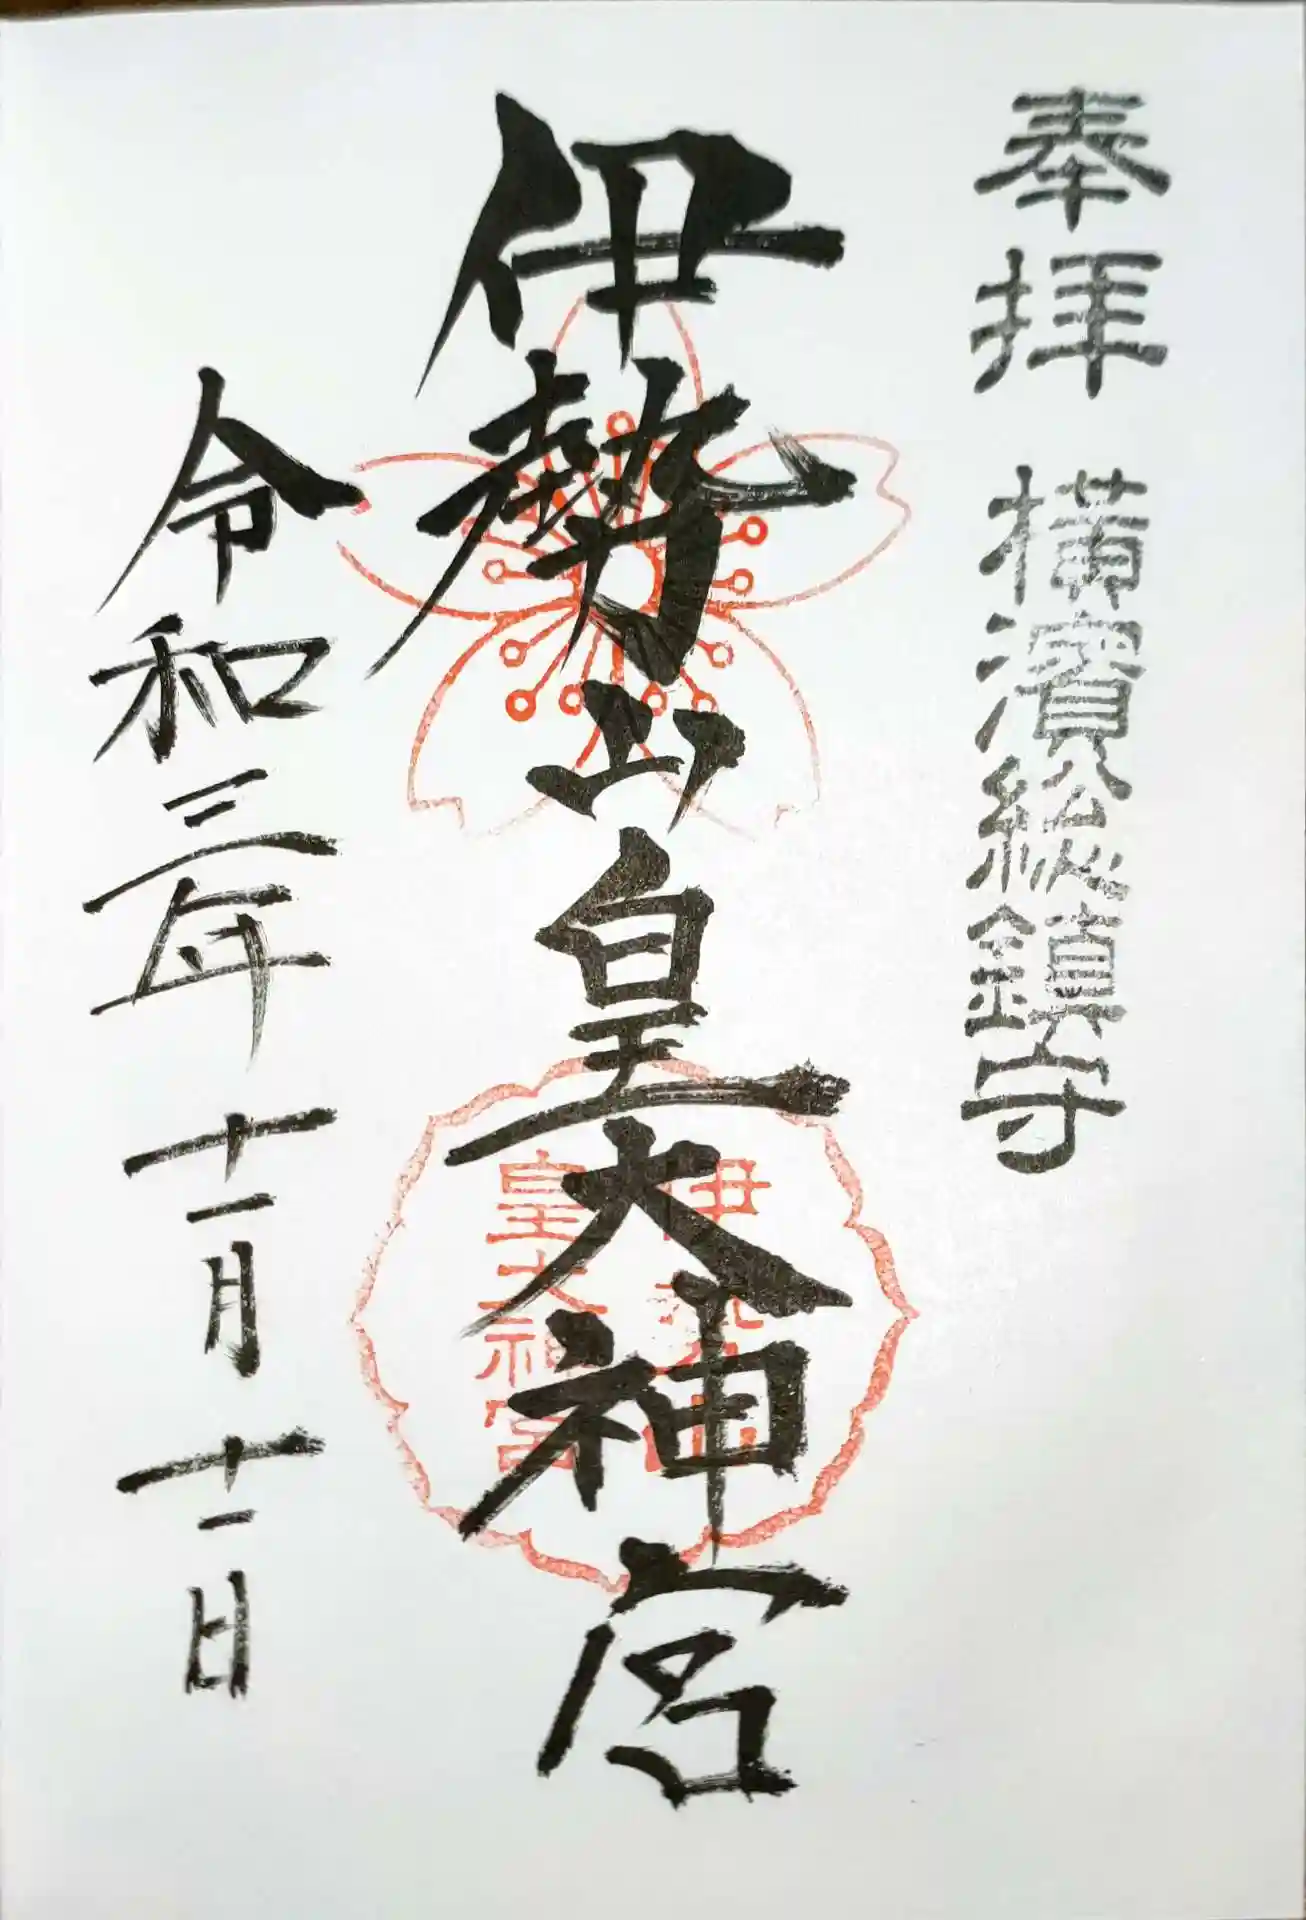 奉拝 横濱総鎮守
伊勢山皇大神宮
伊勢山
皇大神宮
令和三年 十一月 十一日